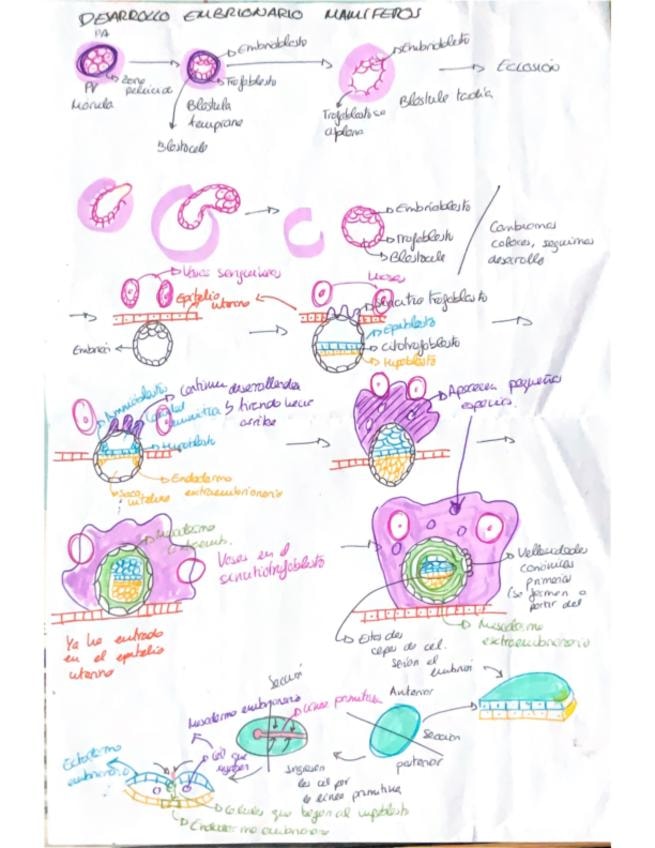 DESARROLLO EMBRIONARIO MAMÍFEROS
PA
Embrioblasto
Embrioblasto
Zona
pelúcida
Trofoblasto
Eclosión
Mórula
Blástula
temprana
Trofoblasto se
aplana
Blástula tardía
Blastocele
Embrioblasto
Trofoblasto
Blastocele
Cambiamos
colores, seguimos
desarrollo
Vasos sanguíneos
Vasos
Epitelio
uterino
Sincitiotrofoblasto
Epiblasto
Embrión
Citotrofoblasto
Hipoblasto
Amnioblasto
Continua desarrollandose
tirando hacia
arriba
Aparecen pequeños
espacios
Cavidad
amniótica
Hipoblasto
Endodermo
extraembrionario
Saco
vitelino
Mesodermo
extraemb.
Vasos en el
sincitiotrofoblasto
Vellosidades
coriónicas
primarias
(se forman a
partir del
Mesodermo
extraembrionario
Ya ha entrado
en el epitelio
uterino
Estas dos
capas de cél.
serían el
embrión
Sección
Anterior
Mesodermo embrionario
Línea primitiva
Ectodermo
embrionario
Cél que
Sección
posterior
Ingresan
las cél por
la línea primitiva
Células que bajan al hipoblasto
Endodermo embrionario